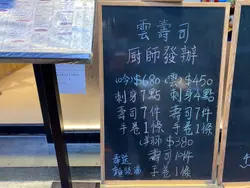 雲壽司
廚師發辦
吟$680 雲$450
刺身7點 刺身4點
壽司7件 壽司7件
手卷1條 手卷1條
$380
壽司10件
手卷1條